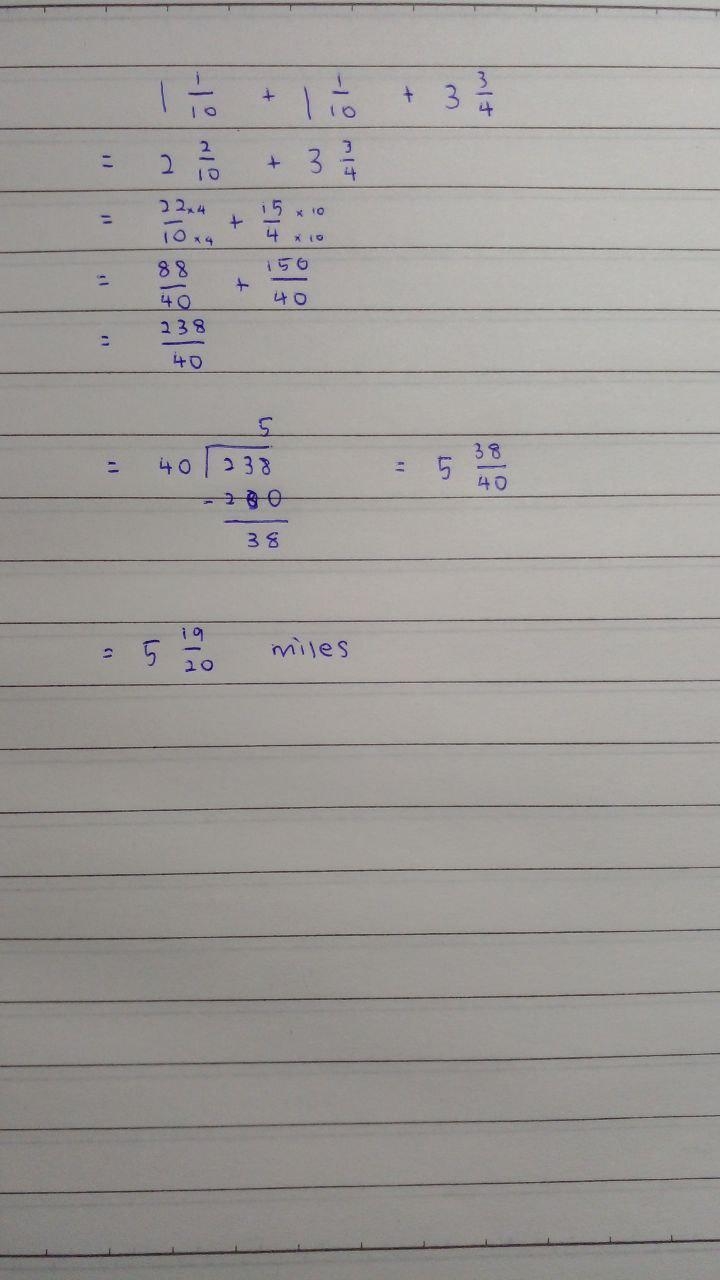 1 1/10 + 1 1/10 + 3 3/4
= 2 2/10 + 3 3/4
= 22×4/10×4 + 15×10/4×10
= 88/40 + 150/40
= 238/40
5
= 40 √238 = 5 38/40
- 200
38
= 5 19/20 miles